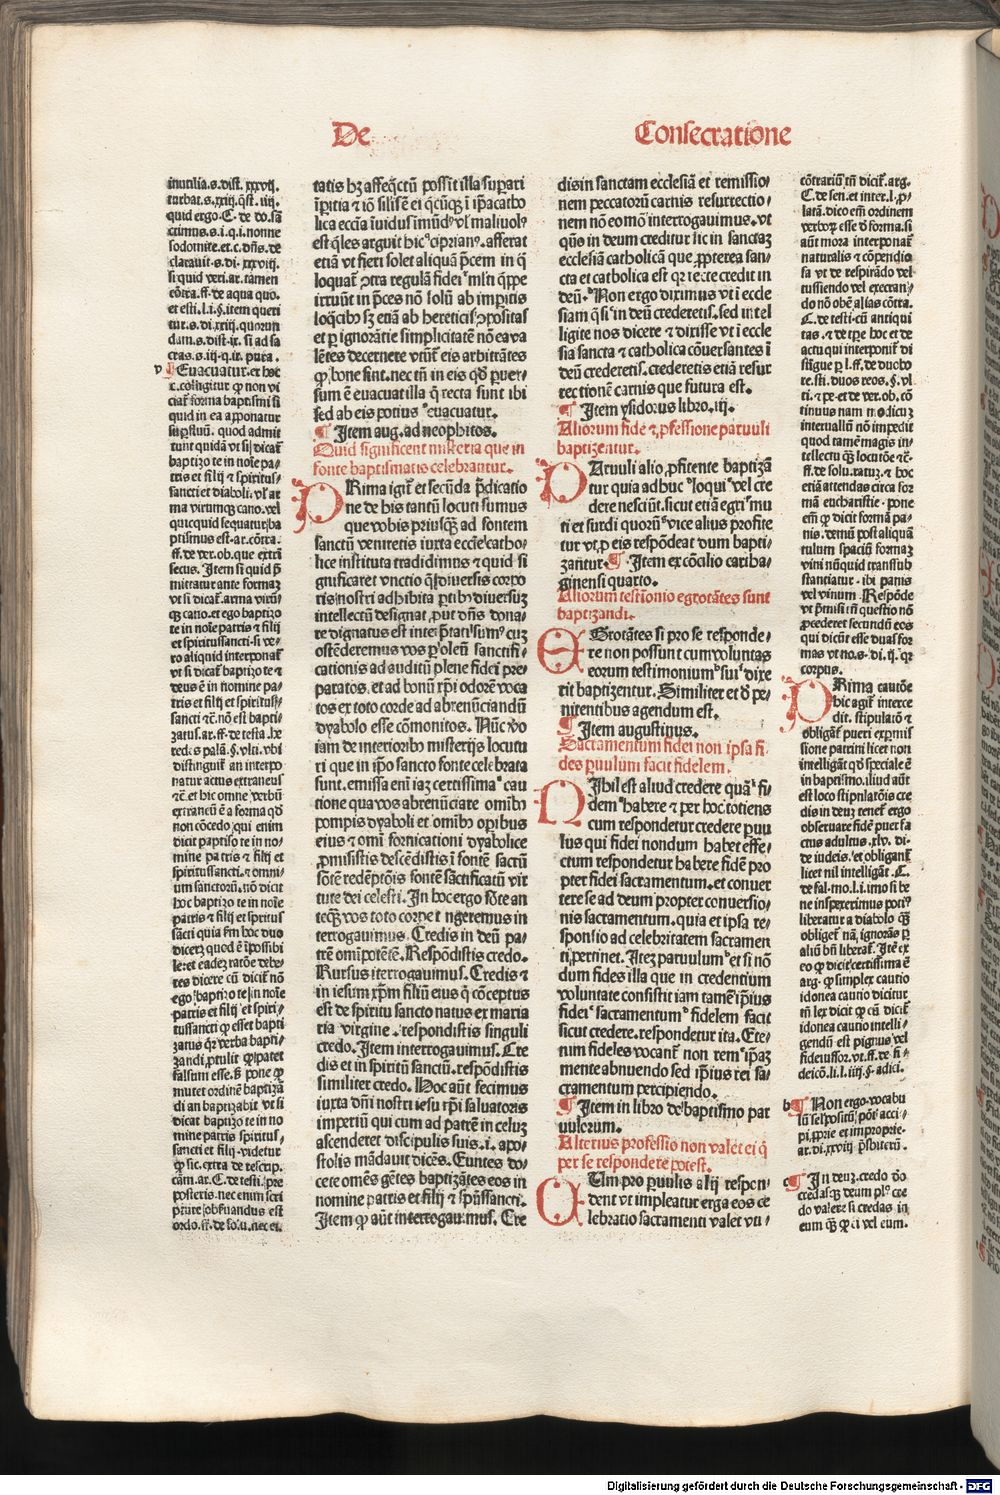 De Consecratione
inutilia.s.dist. xxvij.
turbat.s.xxiij.q̄st. iiij.
quid ergo.C. de do.sā
ctimus.s.i.q.i.nonne
sodomite.et.c.dn̄s.de
clarauit.s.di.xxviij.
si quid veri.ar.tamen
cōtra.ff.de aqua quo.
et esti.l.i.§.item queri
tur.s.di.xxiij.quorun
dam.s.dist.ix.si ad sa
cras.s.iij.q.ix. pura.
v ¶ Euacuatur.et hoc
c.colligitur ꝙ non vi
ciat᷑ forma baptismi si
quid in ea apponatur
suꝑfluū. quod admit
tunt quidā vt si dicat᷑
baptizo te in noīe pa-
tris et filij ⁊ spiritus-
sancti et diaboli.vl' ar
ma virumqꝫ cano.vel
quicquid sequatur ba
ptismus est.ar.cōtra.
ff.de ver.ob.que extrī
secus. Item si quid p̄
mittatur ante formaꝫ
vt si dicat᷑.arma virū-
qꝫ cano.et ego baptizo
te in noīe patris ⁊ filij
et spiritussancti.si ve-
ro aliquid interponat᷑
vt si dicat᷑ baptizo te ⁊
deus ē in nomine pa-
tris et filij et spiritus-
sancti ⁊c̄.nō est bapti-
zatus.ar.ff.de testa.he
redes palā.§.vlti.vbi
distinguit᷑ an interpo
natur actus extraneus
⁊c̄.et hic omne verbū
extraneū ē a forma qd'
non cōcedo qui enim
dicit baptiso te in no-
mine patris ⁊ filij et
spiritussancti.⁊ omni-
um sanctorū.nō dicit
hoc baptizo te in noīe
patris ⁊ filij et spiritus
sācti quia fm hoc duo
diceret quod ē īpossibi
le:et eadeꝫ ratōe debe-
tes dicere cū dicit᷑ nō
ego baptizo te in noīe
patris et filij et spiri-
tussancti ꝙ esset bapti
zatus qr verba bapti-
zandi ꝓtulit ꝙ ipatet
falsum esse.ß pone ꝙ
mutet ordinē baptizā
di an baptizabit vt si
dicat baptizo te in no
mine patris spiritus-
sancti et filij.videtur
ꝙ sic.extra de rescrip.
cām.ar.C.de testi.pre
posteris.nec enim scri
pture obseruandus est
ordo.ff.de solu.nec ei.
tatis hꝫ affeq̄ctū possit illa suꝑari
īꝑitia ⁊ iō silīsē ei q̄cūqꝫ ī ip̄a catho
lica eccīa īuidus' imūd'vl' maliuol'
est q̄les arguit hic ciprian⁹. afferat
etiā vt fieri solet aliquā p̄cem in q̄
loquat᷑ ↄtra regulā fidei mlti q̄ppe
irruūt in p̄ces nō solū ab imꝑitis
loq̄cibus sꝫ etiā ab hereticis ↄpositas
et ꝑ ignorātie simplicitatē nō ea va
lētes decernere vtūt᷑ eis arbitrātes
ꝙ bone sint.nec tn̄ in eis qd' ꝑuer-
sum ē euacuat illa q̄ recta sunt ibi
sed ab eis potius euacuatur.
¶ Item aug. ad neophitos.
Quid significent misteria que in
fonte baptismatis celebrantur.
PRima igit᷑ et secūda p̄dicatio
ne de his tantū locuti sumus
que vobis priusq̄ ad fontem
sanctū veniretis iuxta eccīe catho-
lice instituta tradidimus ⁊ quid si
gnificaret vnctio q̄ diuersis corpo
ris nostri adhibita ꝑtibus diuersuꝫ
intellectū designat ꝓut dn̄s dona-
re dignatus est interp̄tati sumus cuꝫ
ostēderemus vos ꝑ oleū sanctifi-
cationis ad auditū plene fidei pre-
paratos.et ad bonū xp̄i odorē voca
tos ex toto corde ad abrenūciandū
dyabolo esse cōmonitos. Nūc vo
iam de interioribus misterijs locutu
ri que in ip̄o sancto fonte celebrata
sunt.emissa enī iaꝫ certissima cau
tione qua vos abrenūciare omībus
pompis dyaboli et omībus oꝑibus
eius ⁊ omī fornicationi dyabolice
ꝓmisistis descēdistis ī fontē sacrū
fōtē redēptōis fontē sāctificatū vir
tute dei celesti. In hoc ergo fōte an
teq̄ vos toto corꝑe tingeremus in
terrogauimus. Credis in deū pa-
trē omīpotētē. Respōdistis credo.
Rursus īterrogauimus. Credis ⁊
in iesum xp̄m filiū eius q̄ cōceptus
est de spiritu sancto natus ex maria
ria virgine. respondistis singuli
credo. Item interrogauimus. Cre
dis et in spiritū sanctū.respōdistis
similiter credo. Hoc aūt fecimus
iuxta dn̄i nostri iesu xp̄i saluatoris
imperiū qui cum ad patrē in celuꝫ
ascenderet discipulis suis.i. apo-
stolis mādauit dicēs. Euntes do-
cete omēs gētes baptizātes eos in
nomine patris et filij ⁊ sp̄ussancti.
Item ꝙ aūt interrogauimus. Cre
dis in sanctam ecclesiā et remissio-
nem peccatorū carnis resurrectio-
nem nō eo mō interrogauimus. vt
quō in deum creditur sic in sanctaꝫ
ecclesiā catholicā que ꝓpterea san-
cta et catholica est qr recte credit in
deū. Non ergo diximus vt ī eccle
siam q̄si in deū crederetis. sed intel
ligite nos dicere ⁊ dixisse vt ī eccle
sia sancta ⁊ catholica cōuersantes ī
deū crederetis. crederetis etiā resur
rectionē carnis que futura est.
¶ Item ysidorus libro. iij.
Aliorum fide ⁊ ꝓfessione paruuli
baptizentur.
PAruuli alio ꝓfitente baptizā
tur quia adhuc loqui vel cre
dere nesciūt.sicut etiā egri mu
ti et surdi quorū vice alius profite
tur vt ꝓ eis respōdeat dum bapti-
zantur. ¶ Item ex cōcilio cartha-
ginensi quarto.
Aliorum testīonio egrotātes sunt
baptizandi.
EGrotātes si pro se responde-
re non possunt cum voluntas
eorum testimonium sui dixe
rit baptizentur. Similiter et d' pe-
nitentibus agendum est.
¶ Item augustinus.
Sacramentum fidei non ipsa fi-
des ꝑuulum facit fidelem.
NIhil est aliud credere quā fi-
dem habere ⁊ per hoc.totiens
cum respondetur credere ꝑuu
lus qui fidei nondum habet effe-
ctum respondetur habere fidē pro
pter fidei sacramentum.et conuer
tere se ad deum propter conuersio-
nis sacramentum.quia et ipsa re-
sponsio ad celebritatem sacramen
ti ꝑtinet. Iteꝫ paruulum et si nō
dum fides illa que in credentium
voluntate consistit iam tamē ip̄ius
fidei sacramentum fidelem facit
sicut credere.respondetur ita. Ete-
nim fideles vocant᷑ non rem ip̄aꝫ
mente abnuendo sed ip̄ius rei sa-
cramentum percipiendo.
¶ Item in libro de baptismo par
uulorum.
Alterius professio non valet ei q̄
per se respondere potest.
CUm pro ꝑuulis alij respon-
dent vt impleatur erga eos ce
lebratio sacramenti valet vti-
cōtrariū tn̄ dicit᷑.arg.
C.de sen.et inter.l.ꝓ-
latā.dico em̄ ordinem
verboꝝ esse d' forma.si
aūt mora interponat᷑
naturalis ⁊ cōpendio
sa vt de respirādo vel
tussiendo vel excreen-
do nō obē alias cōtra.
C.de testi.cū antiqui
tas.⁊ de tꝑe hoc et de
actu qui interponit᷑ di
stīgue ꝑ l.ff.de duobus
re.sti.duos reos.§.vl
ti.⁊ pe.et de ver.ob.cō
tinuus nam modicuꝫ
interuallū nō impedit
quod tamē magis in-
tellectu qꝫ locutōe ⁊c̄.
ff.de solu.ratuꝫ.⁊ hoc
etiā attendas circa for
mā eucharistie. pone
em̄ ꝙ dicit formā pa-
nis.demū post aliquā
tulum spaciū formaꝫ
vini nūquid transsub
stanciatur.ibi panis
vel vinum. Respōde
vt p̄misi:tn̄ questio nō
ꝓcederet secundū eos
qui dicūt esse duas for
mas vt no.s.di.ij.qr
corpus.
PRima cautōe
hic agit᷑ interce
dit. stipulatō ⁊
obligat᷑ pueri exꝓmis
sione patrini licet non
intelligāt qd' speciale ē
in baptismo.aliud aūt
est loco stipulatōis cre
dis in deuꝫ tenet᷑ ergo
obseruare fidē puer fa
ctus adultus.xlv. di-
de iudeis.et obligant᷑
licet nil intelligāt. C.
de fal.mo.l.i.imo si be
ne inspexerimus poti⁹
liberatur a diabolo q̄
obliget᷑ nā.ignorās ꝑ
aliū bn̄ liberat᷑. Itē ex
eo ꝙ dicit᷑ certissima ē
arg.ꝙ simplex cautio
idonea cautio dicitur
tn̄ lex dicit ꝙ cū dicit᷑
idonea cautio intelli-
gendū est pignus vel
fideiussor.vt.ff.de fi-
deicō.li.l.iiij.§.adici.
b ¶ Non ergo.vocabu
lū se ꝓpositū pōt acci-
pi ꝓprie et improprie.
ar.di.xxviij p̄sbiterū.
c ¶ In deuꝫ.credo vo
credasqꝫ deum plus cre
do valere si credas in
eum qꝫ ꝙ ei vel eum.
Digitalisierung gefördert durch die Deutsche Forschungsgemeinschaft - DFG